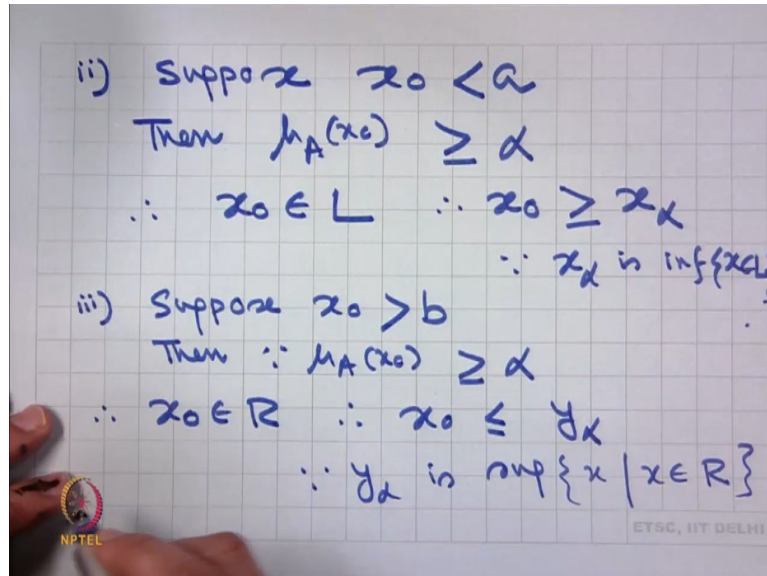 ii) Suppose x₀ < a
Then μ_A(x₀) ≥ α
∴ x₀ ∈ L ∴ x₀ ≥ x_α
∵ x_α is inf{x∈L
iii) Suppose x₀ > b
Then ∵ μ_A(x₀) ≥ α
∴ x₀ ∈ R ∴ x₀ ≤ y_α
∵ y_α is sup{x | x ∈ R}
ETSC, IIT DELHI
NPTEL